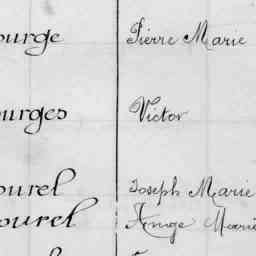 ourge Pierre Marie
ourges Victor
ourel Joseph Marie
ourel Ange Marie